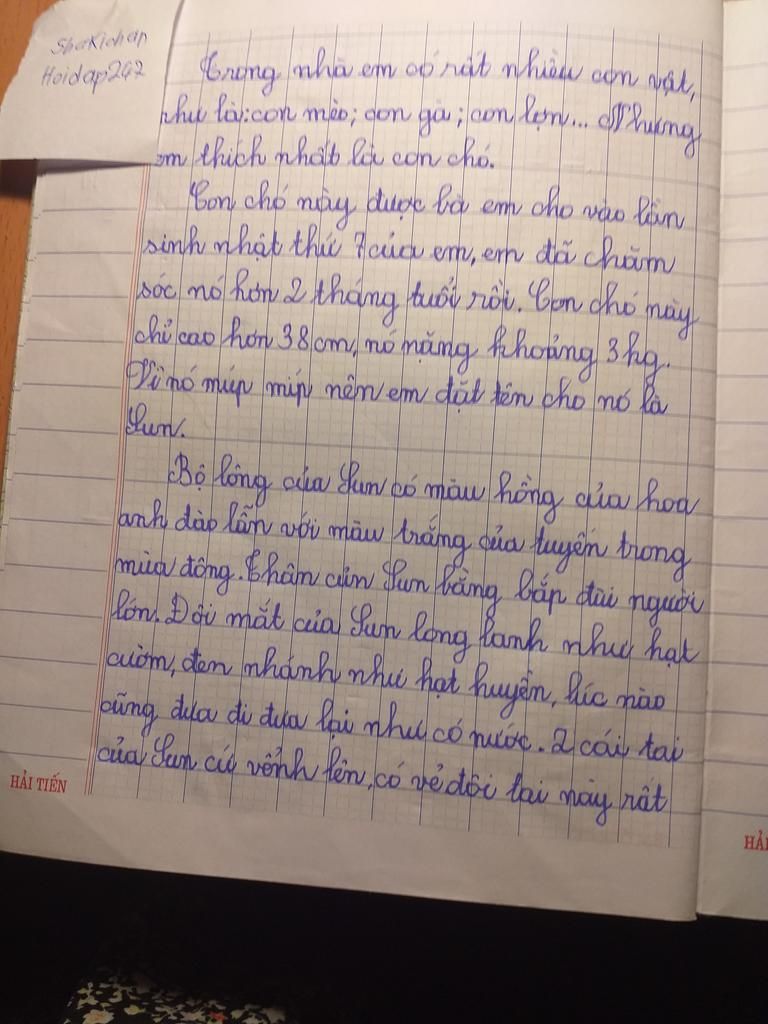 Shakichan
Hoidap247
Trong nhà em có rất nhiều con vật,
như là: con mèo; con gà; con lợn... Nhưng
em thích nhất là con chó.
Con chó này được bà em cho vào lần
sinh nhật thứ 7 của em, em đã chăm
sóc nó hơn 2 tháng tuổi rồi. Con chó này
chỉ cao hơn 38cm, nó nặng khoảng 3kg.
Vì nó múp míp nên em đặt tên cho nó là
Sun.
Bộ lông của Sun có màu hồng của hoa
anh đào lẫn với màu trắng của tuyến trong
mùa đông. Thân của Sun bằng bắp đùi người
lớn. Đôi mắt của Sun long lanh như hạt
cườm, đen nhánh như hạt huyền, lúc nào
cũng đưa đi đưa lại như có nước. 2 cái tai
của Sun cứ vểnh lên, có vẻ đôi tai này rất
HẢI TIẾN
HẢI